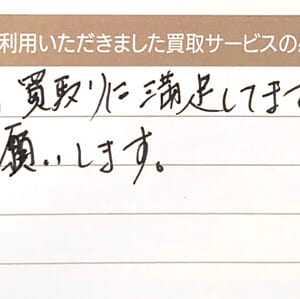 利用いただきました買取サービスの
買取りに満足してます
願いします。